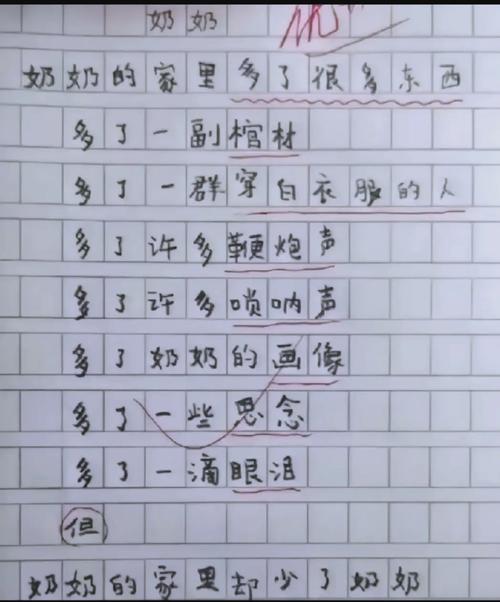 奶奶
优
奶奶的家里多了很多东西
多了一副棺材
多了一群穿白衣服的人
多了许多鞭炮声
多了许多唢呐声
多了奶奶的画像
多了一些思念
多了一滴眼泪
但
奶奶的家里却少了奶奶